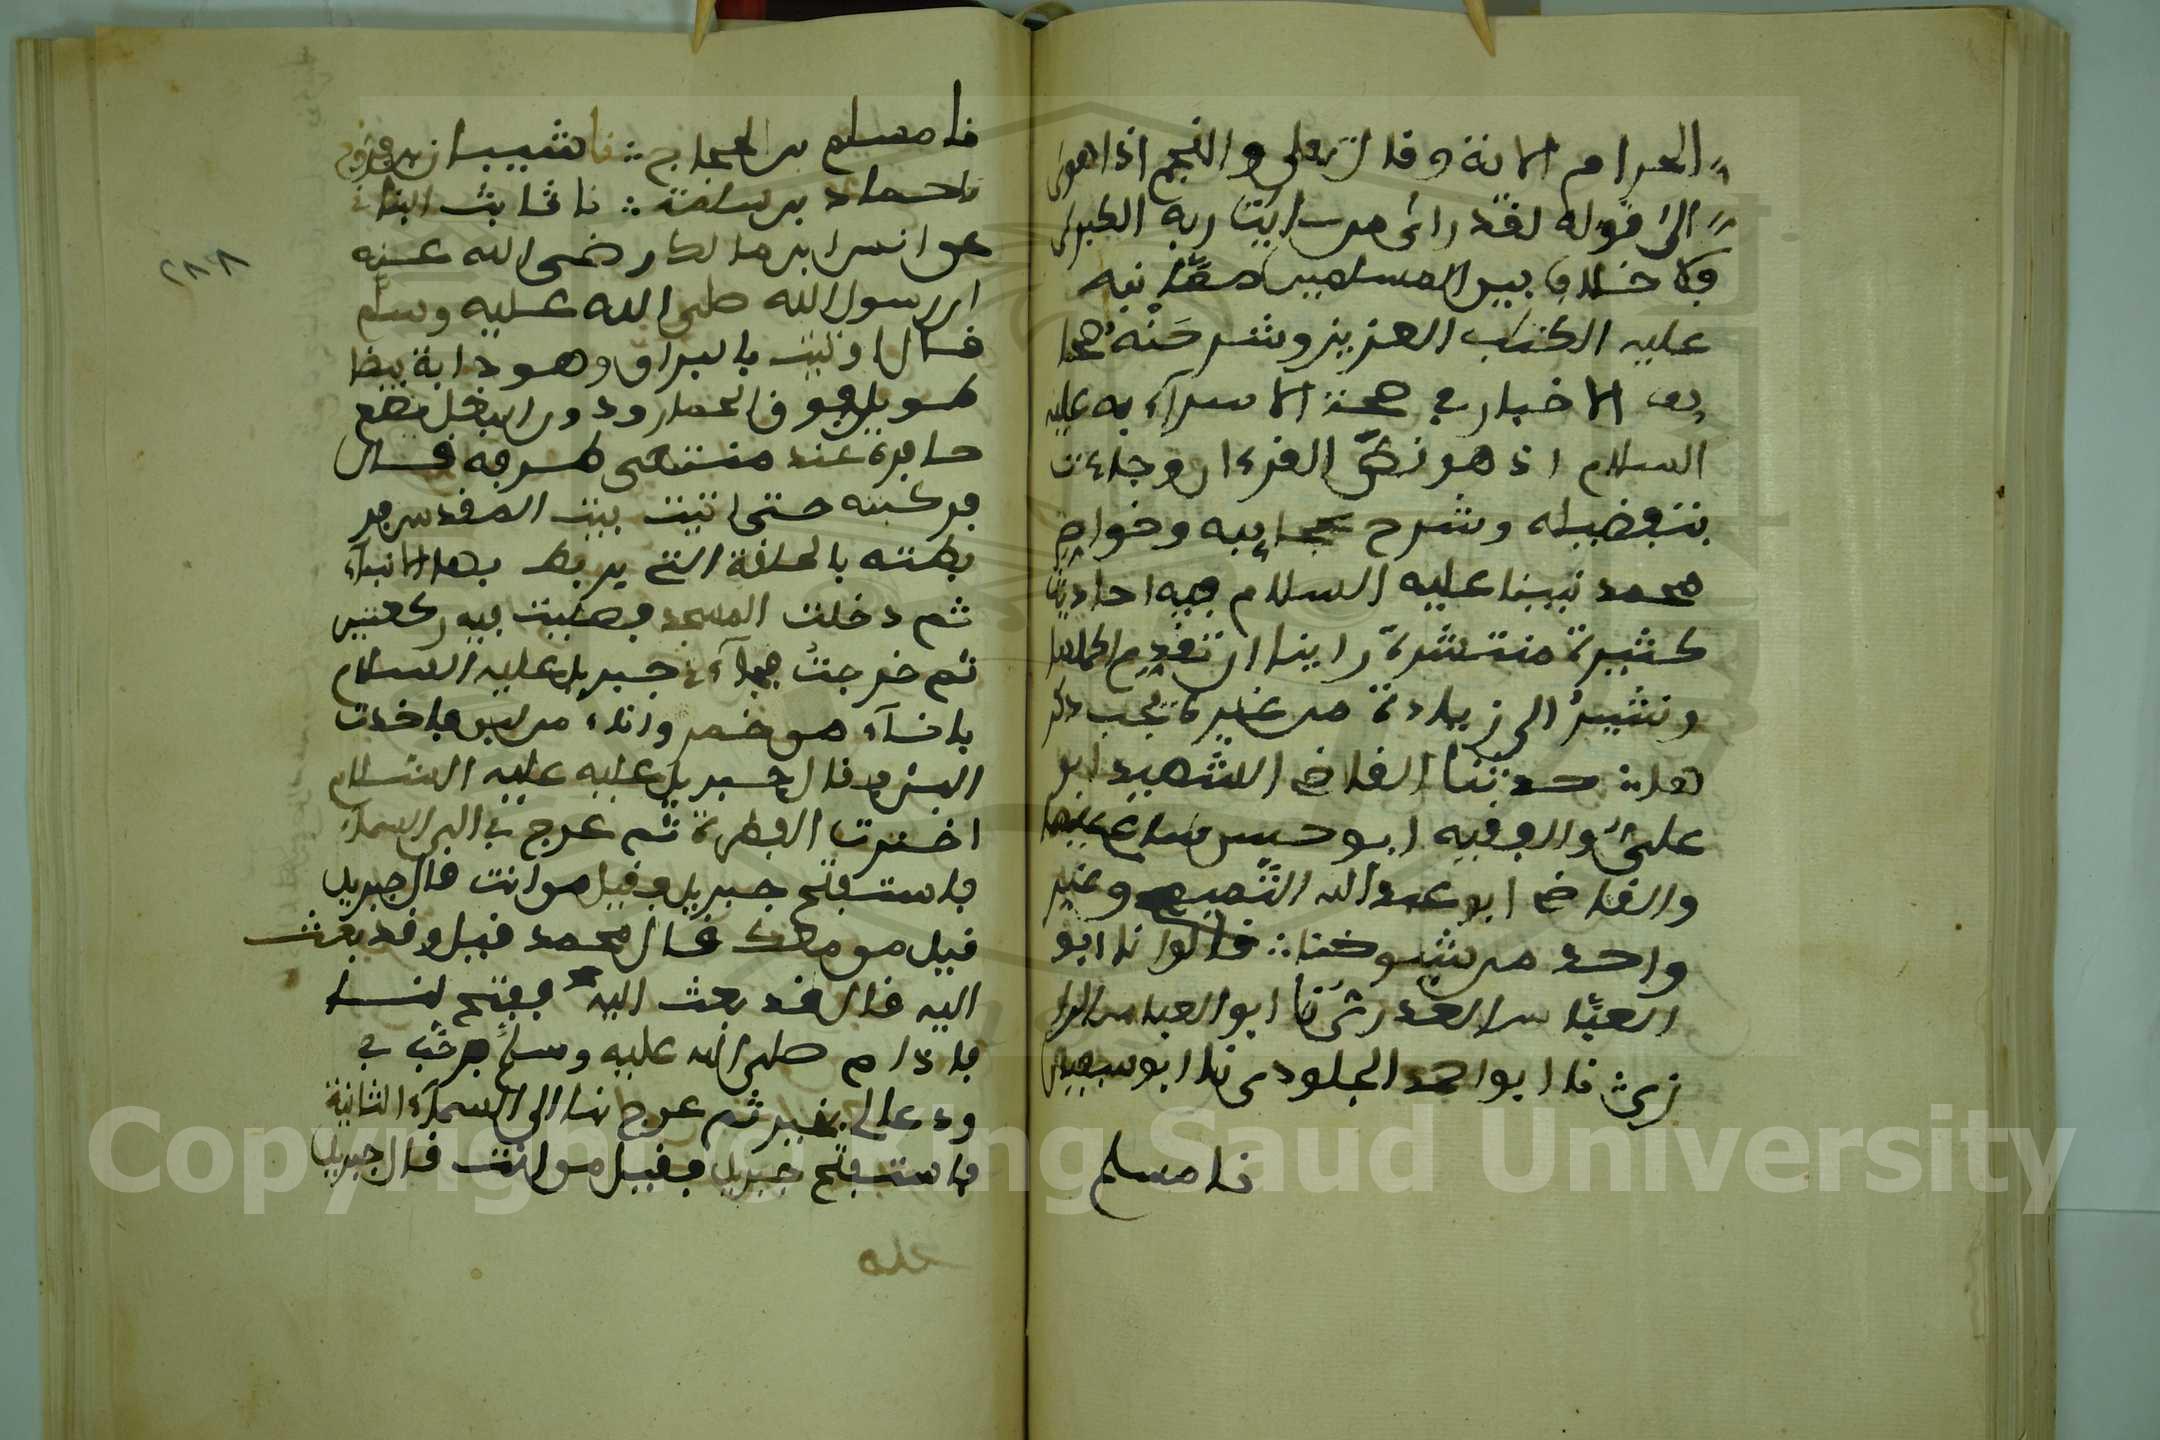 الحرام الاية وقال تعلى والنجم اذا هوى
الى قوله لقد راى من ايت ربه الكبرى
فلا خلاف بين المسلمين
عليه الكتاب العزيز وشرحته صحا
يف الاخبار في صحة الاسراء به عليه
السلام اذ هو نص القرءان وجاءت
بتفضيله وشرح عجايبه وخواص
محمد نبينا عليه السلام فيه احاديث
كثيرة منتشرة راينا ان نقدم اكملها
ونشير الى زيادة من غيره يجب ذكر
ها حدثنا القاضي الشهيد ابو
علي والفقيه ابو بحر بسماعي عليهما
والقاضي ابو عبد الله التميمي وغير
واحد من شيوخنا قالوا نا ابو
العباس العذري نا ابو العباس الرا
زي نا ابو احمد الجلودي نا ابو سفيان
نا مسلم
نا مسلم بن الحجاج نا شيبان بن فروخ
نا حماد بن سلمة نا ثابت البناني
عن انس ابن مالك رضى الله عنه
ان رسول الله صلى الله عليه وسلم
قال اوتيت بالبراق وهو دابة بيضا
طويل فوق الحمار ودون البغل يضع
حافره عند منتهى طرفه قال
فركبته حتى اتيت بيت المقدس فر
بطته بالحلقة التي يربط بها الانبياء
ثم دخلت المسجد فصليت فيه ركعتين
ثم خرجت فجاءني جبريل عليه السلام
باناء من خمر واناء من لبن فاخذت
اللبن فقال جبريل عليه عليه السلام
اخترت الفطرة ثم عرج بي الى السماء
فاستفتح جبريل فقيل من انت قال جبريل
قيل من معك قال محمد قيل وقد بعث
اليه قال قد بعث اليه ففتح لنا
فاذا ءادم صلى الله عليه وسلم فرحب بي
ودعا لي بخير ثم عرج بنا الى السماء الثانية
فاستفتح جبريل فقيل من انت قال جبريل
٢٨٨
Copyright © King Saud University